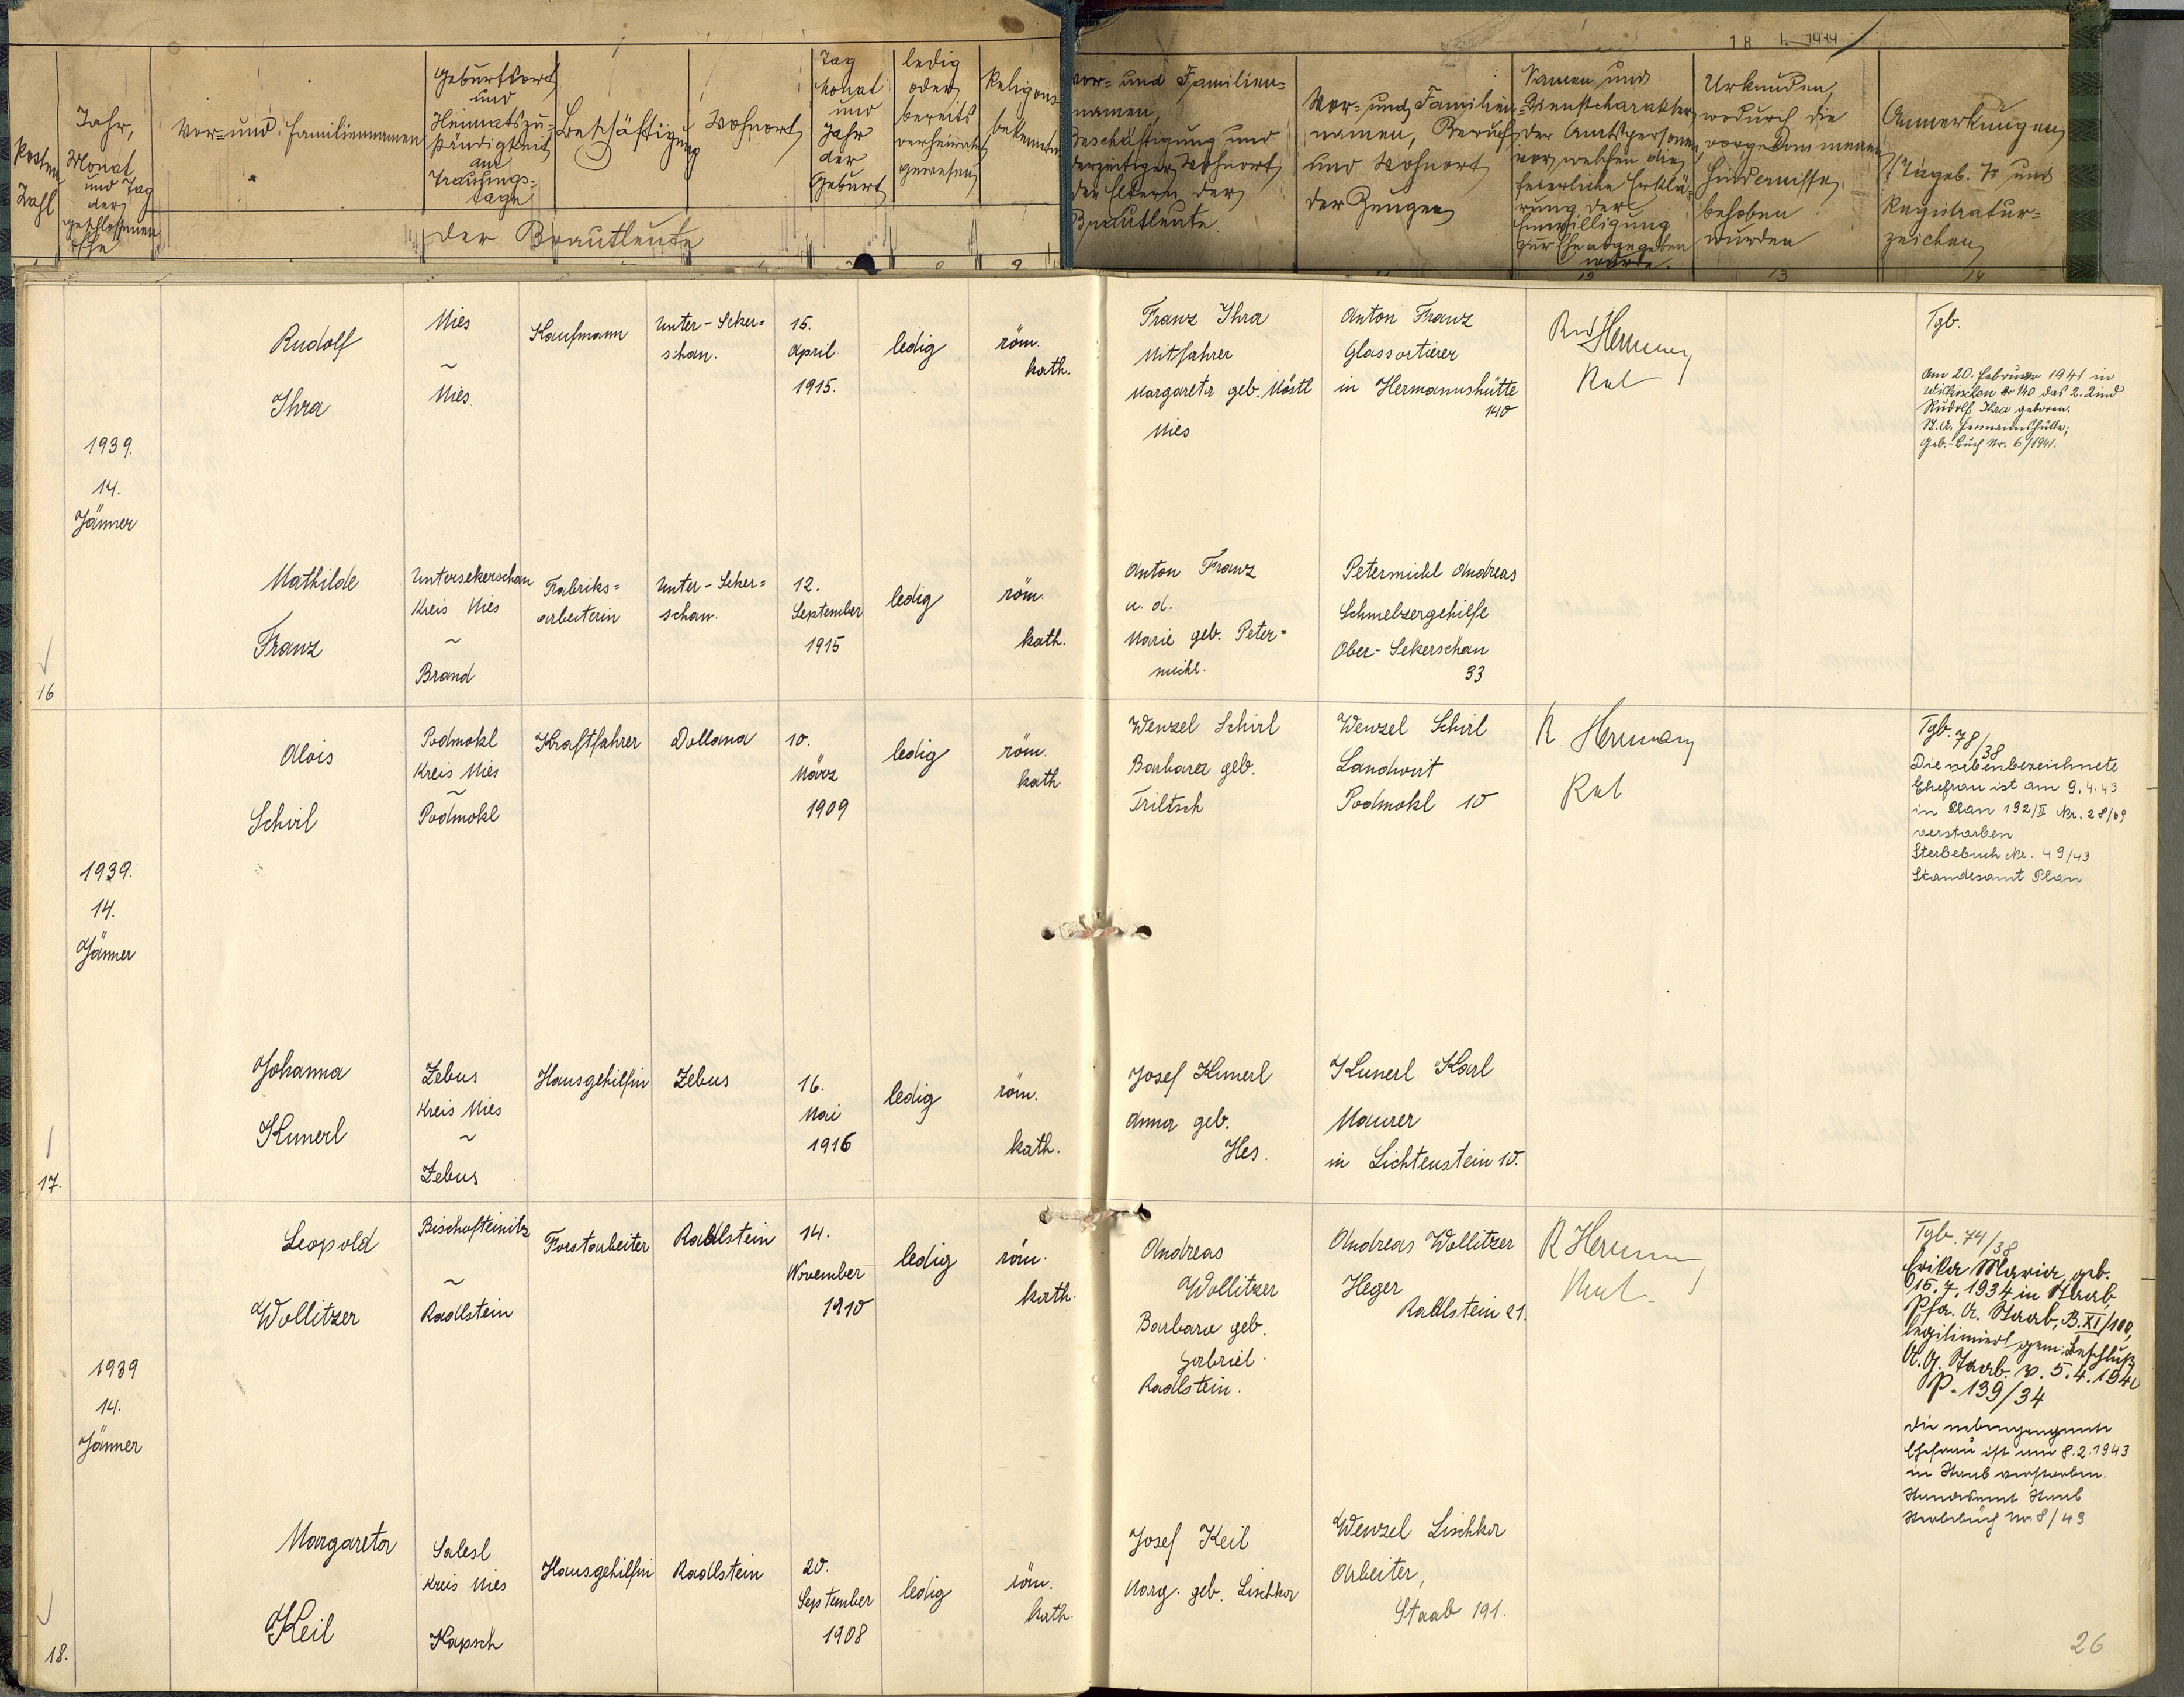 18 1. 1939
Posten
Zahl
Jahr,
Monat
und Tag
der
geschlossenen
Ehe
Vor- und Familiennamen
Geburtsort
und
Heimatszu-
ständigkeit
am
Trauungs-
tage
Beschäftigung
Wohnort
Tag
Monat
und
Jahr
der
Geburt
ledig
oder
bereits
verheiratet
gewesen
Religions
bekenntn
der Brautleute
Vor- und Familien-
namen,
Beschäftigung und
derzeitiger Wohnort
der Eltern der
Brautleute.
Vor- und Familien-
namen, Beruf
und Wohnort
der Zeugen
Namen und
Dienstcharakter
der Amtsperson
vor welchen die
feierliche Erklä-
rung der
Einwilligung
zur Ehe abgegeben
wurde.
Urkunden,
wodurch die
vorgekommenen
Hindernisse
behoben
wurden
Anmerkungen
Tageb. Z. und
Registratur-
zeichen
9
12
13
14
16
1939.
14.
Jänner
Rudolf
Ihra
Mies
~
Mies
Kaufmann
Unter-Seker=
schan.
15.
April
1915.
ledig
röm.
kath.
Franz Ihra
Mitfahrer
Margareta geb. Köstl
Mies
Anton Franz
Glassortierer
in Hermannshütte
140
Rud Hermann
Rat
Tgb.
Am 20. Februar 1941 in
Wilkischen Nr 140 das 2. Kind
Rudolf Ihra geboren.
St. A. Hermannshütte;
Geb.-Buch Nr. 6/1941.
Mathilde
Franz
Untersekerschan
Kreis Mies
~
Brand
Fabriks=
arbeiterin
Unter-Seker=
schan.
12.
September
1915
ledig
röm.
kath.
Anton Franz
u. d.
Marie geb. Peter=
michl.
Petermichl Andreas
Schmelzergehilfe
Ober-Sekerschan
33
17.
1939.
14.
Jänner
Alois
Schirl
Podmokl
Kreis Mies
~
Podmokl
Kraftfahrer
Dollana
10.
März
1909
ledig
röm.
kath
Wenzel Schirl
Barbara geb.
Triltsch
Wenzel Schirl
Landwirt
Podmokl 10
R. Hermann
Rat
Tgb. 78/38
Die nebenbezeichnete
Ehefrau ist am 9.4.43
in Plan 192/II Nr. 28/69
verstorben
Sterbebuch Nr. 49/43
Standesamt Plan
Johanna
Kunerl
Zebus
Kreis Mies
~
Zebus
Hausgehilfin
Zebus
16.
Mai
1916
ledig
röm.
kath.
Josef Kunerl
Anna geb.
Hes.
Kunerl Karl
Maurer
in Lichtenstein 10.
18.
1939
14.
Jänner
Leopold
Wollitzer
Bischofteinitz
~
Radlstein
Forstarbeiter
Radlstein
14.
November
1910
ledig
röm.
kath.
Andreas
Wollitzer
Barbara geb.
Gabriel.
Radlstein.
Andreas Wollitzer
Heger
Radlstein 21.
R Hermann
Rat
Tgb. 74/38
Erika Maria, geb.
15.7.1934 in Staab,
Pfa. A. Staab, B. XI/100,
legitimiert gem. Beschluß
A.G. Staab v. 5.4.1940
P. 139/34
Die nebengenannte
Ehefrau ist am 8.2.1943
in Staab verstorben.
Standesamt Staab
Sterbebuch Nr 8/43
Margareta
Keil
Salesl
Kreis Mies
Kapsch
Hausgehilfin
Radlstein
20.
September
1908
ledig
röm.
kath.
Josef Keil
Marg. geb. Lischka
Wenzel Lischka
Arbeiter,
Staab 191.
26